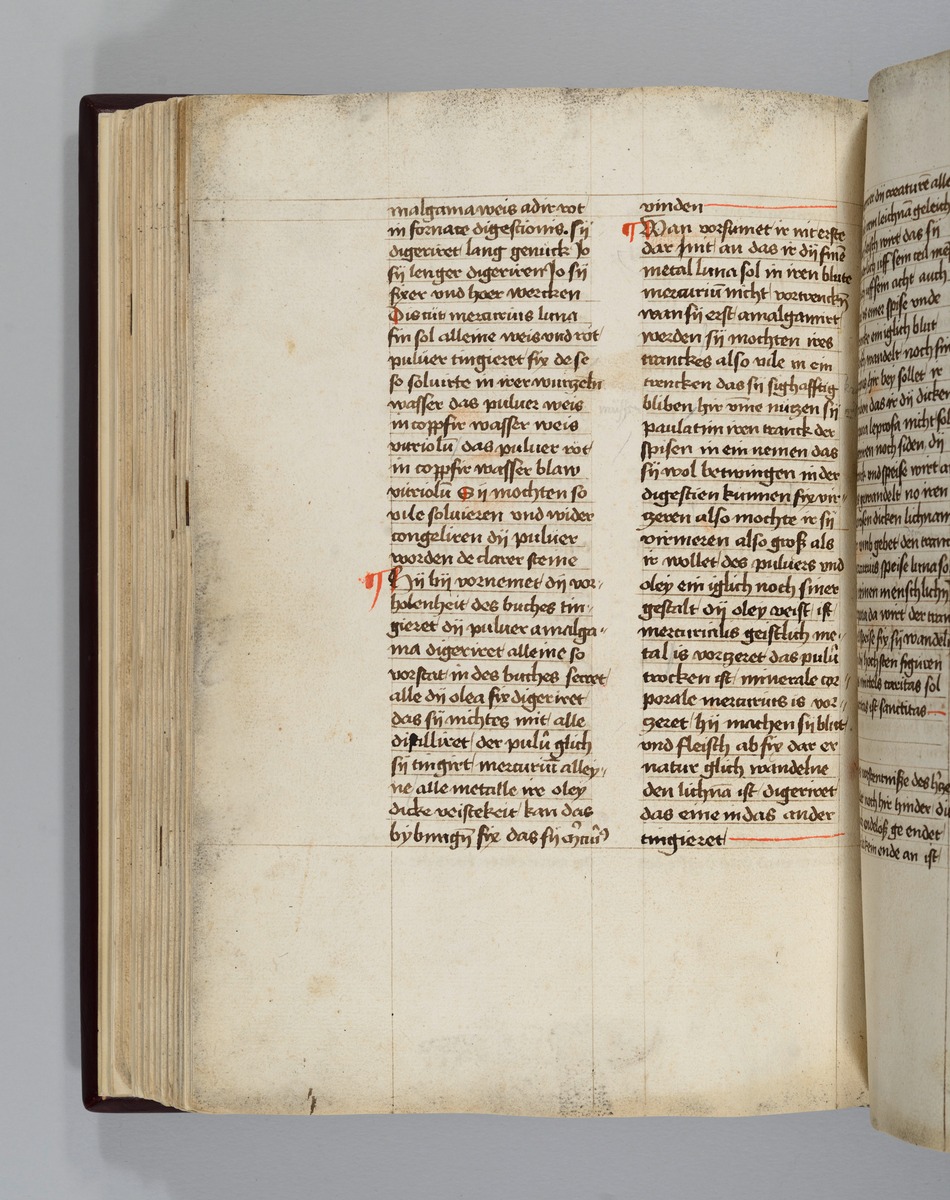 malgama weis adir rot
in fornace digestionis. sij
digeriret lang genuck Jo
sij lenger digeriren Jo sij
fixer vnd hoer wercken
Discut mercurius luna
fin sol alleine weis vnd rot
puluer tingieret fix de se
so soluirte in irer wurtzeln
wasser das puluer weis
in coppfir wasser weis
vitriolū das puluer rot
in coppfir wasser blaw
vitriolū Sij mochten so
vile soluieren vnd wider
congeliren dij puluer
worden de clarer steine
Hij bij vornemet dij vor
holenheit des buches tin
gieret dij puluer amalga
ma digeriret alleine so
vorstat in des buches secret
alle dij olea fix digeriret
das sij nichtes mit alle
distilliret der pulū glich
sij tingirt mercuriū alley
ne alle metalle ire oley
dicke veistekeit kan das
fix das sij
vinden
Man vorsumet ir mit erste
dar Jnit an das ir dij finē
metal luna sol in iren blute
mercuriū nicht vortrenckē
wan sij erst amalgamirt
werden sij mochten ires
tranckes also vile in ein
trencken das sij sighafftig
bliben hir vme nutzen sij
paulatim iren tranck der
spisen in ein nemen das
sij wol betwingen in der
digestien kunnen fix vir
tzeren also mochte ir sij
virmeren also groß als
ir wollet des puluers vnd
oley ein iglich noch siner
gestalt dij oley veist ist
mercurialis geistlich me
tal is vortzeret das pulū
trocken ist minerale cor
porale mercurius is vor
tzeret hij machen sij blut
vnd fleisch ab fix dar er
natur glich wandelne
den lichnā ist digeriret
das eine in das ander
tingieret
dij creaturē alle
leichnā geleich
wirt das sij
uff sem teil me
uff sem acht auch
einer spise vnde
ein iglich blut
wandelt noch
hir bey sollet ir
das ir dij dicken
leprosa nicht
noch siden dij
vnd speise wirt
gewandelt no iren
dicken lichnam
vmb gebet den
speise luna so
menschlichn
wirt der
fix sij
hochsten figuren
caritas sol
ist sanctitas
des
noch hir hinder
endeloß ge endet
ende an ist